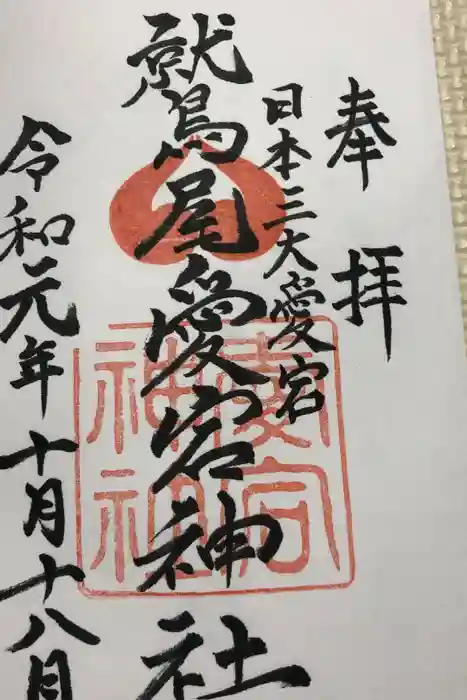 奉拝
日本三大愛宕
鷲尾愛宕神社
令和元年十月十八日
愛宕
神社